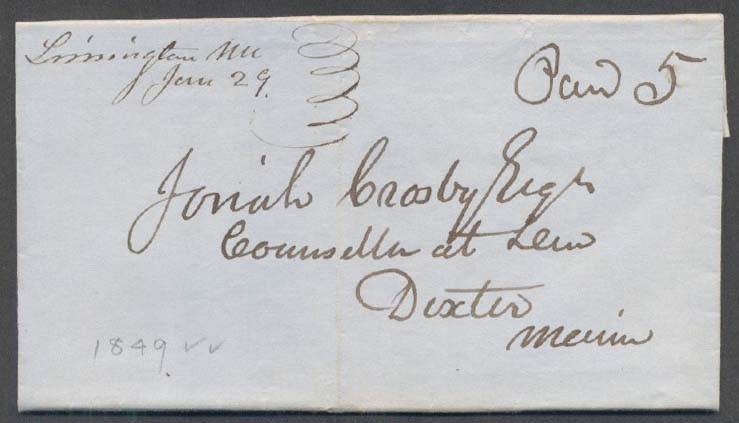 Limington Me
Jan 29
Paid 5
Josiah Crosby Esqr
Counsellor at Law
Dexter
Maine
1849